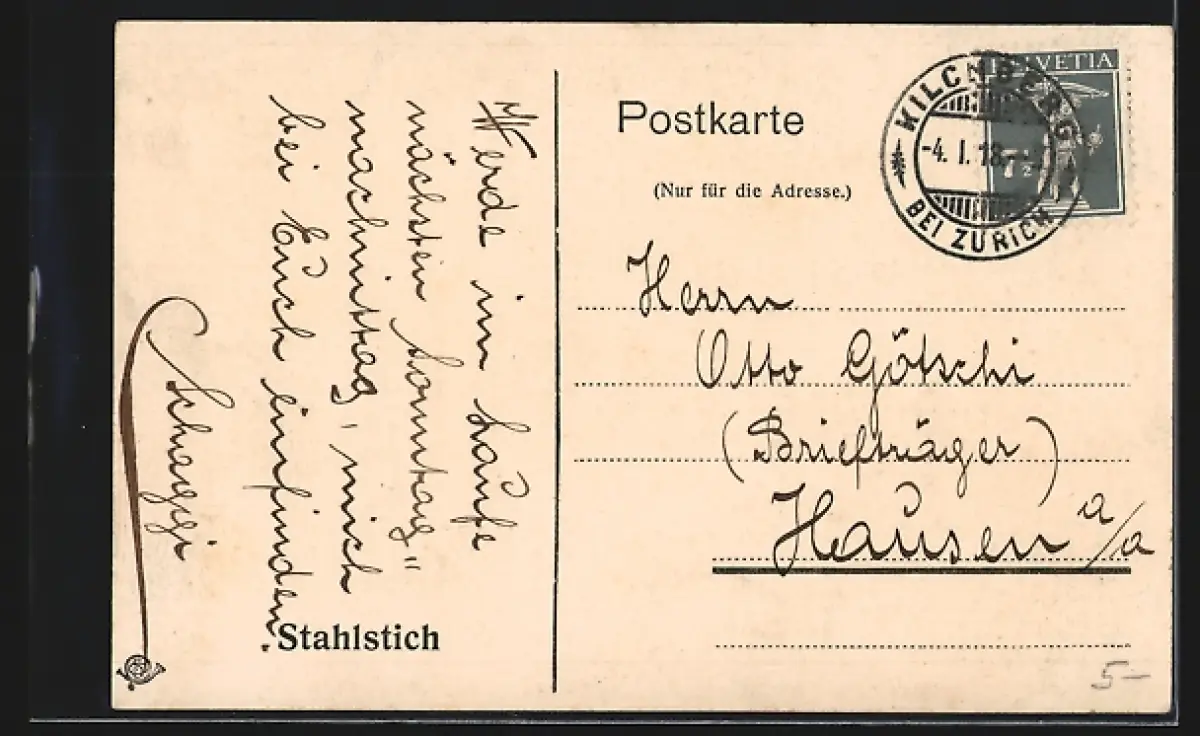 Werde im Laufe
nächsten Sonntag"
nachmittag, mich
bei Euch einfinden.
Stahlstich
Postkarte
(Nur für die Adresse.)
HELVETIA
7½
KILCHBERG
-4. I. 18.-
BEI ZÜRICH
Herrn
Otto Götschi
(Briefträger)
Hausen a/a
5-